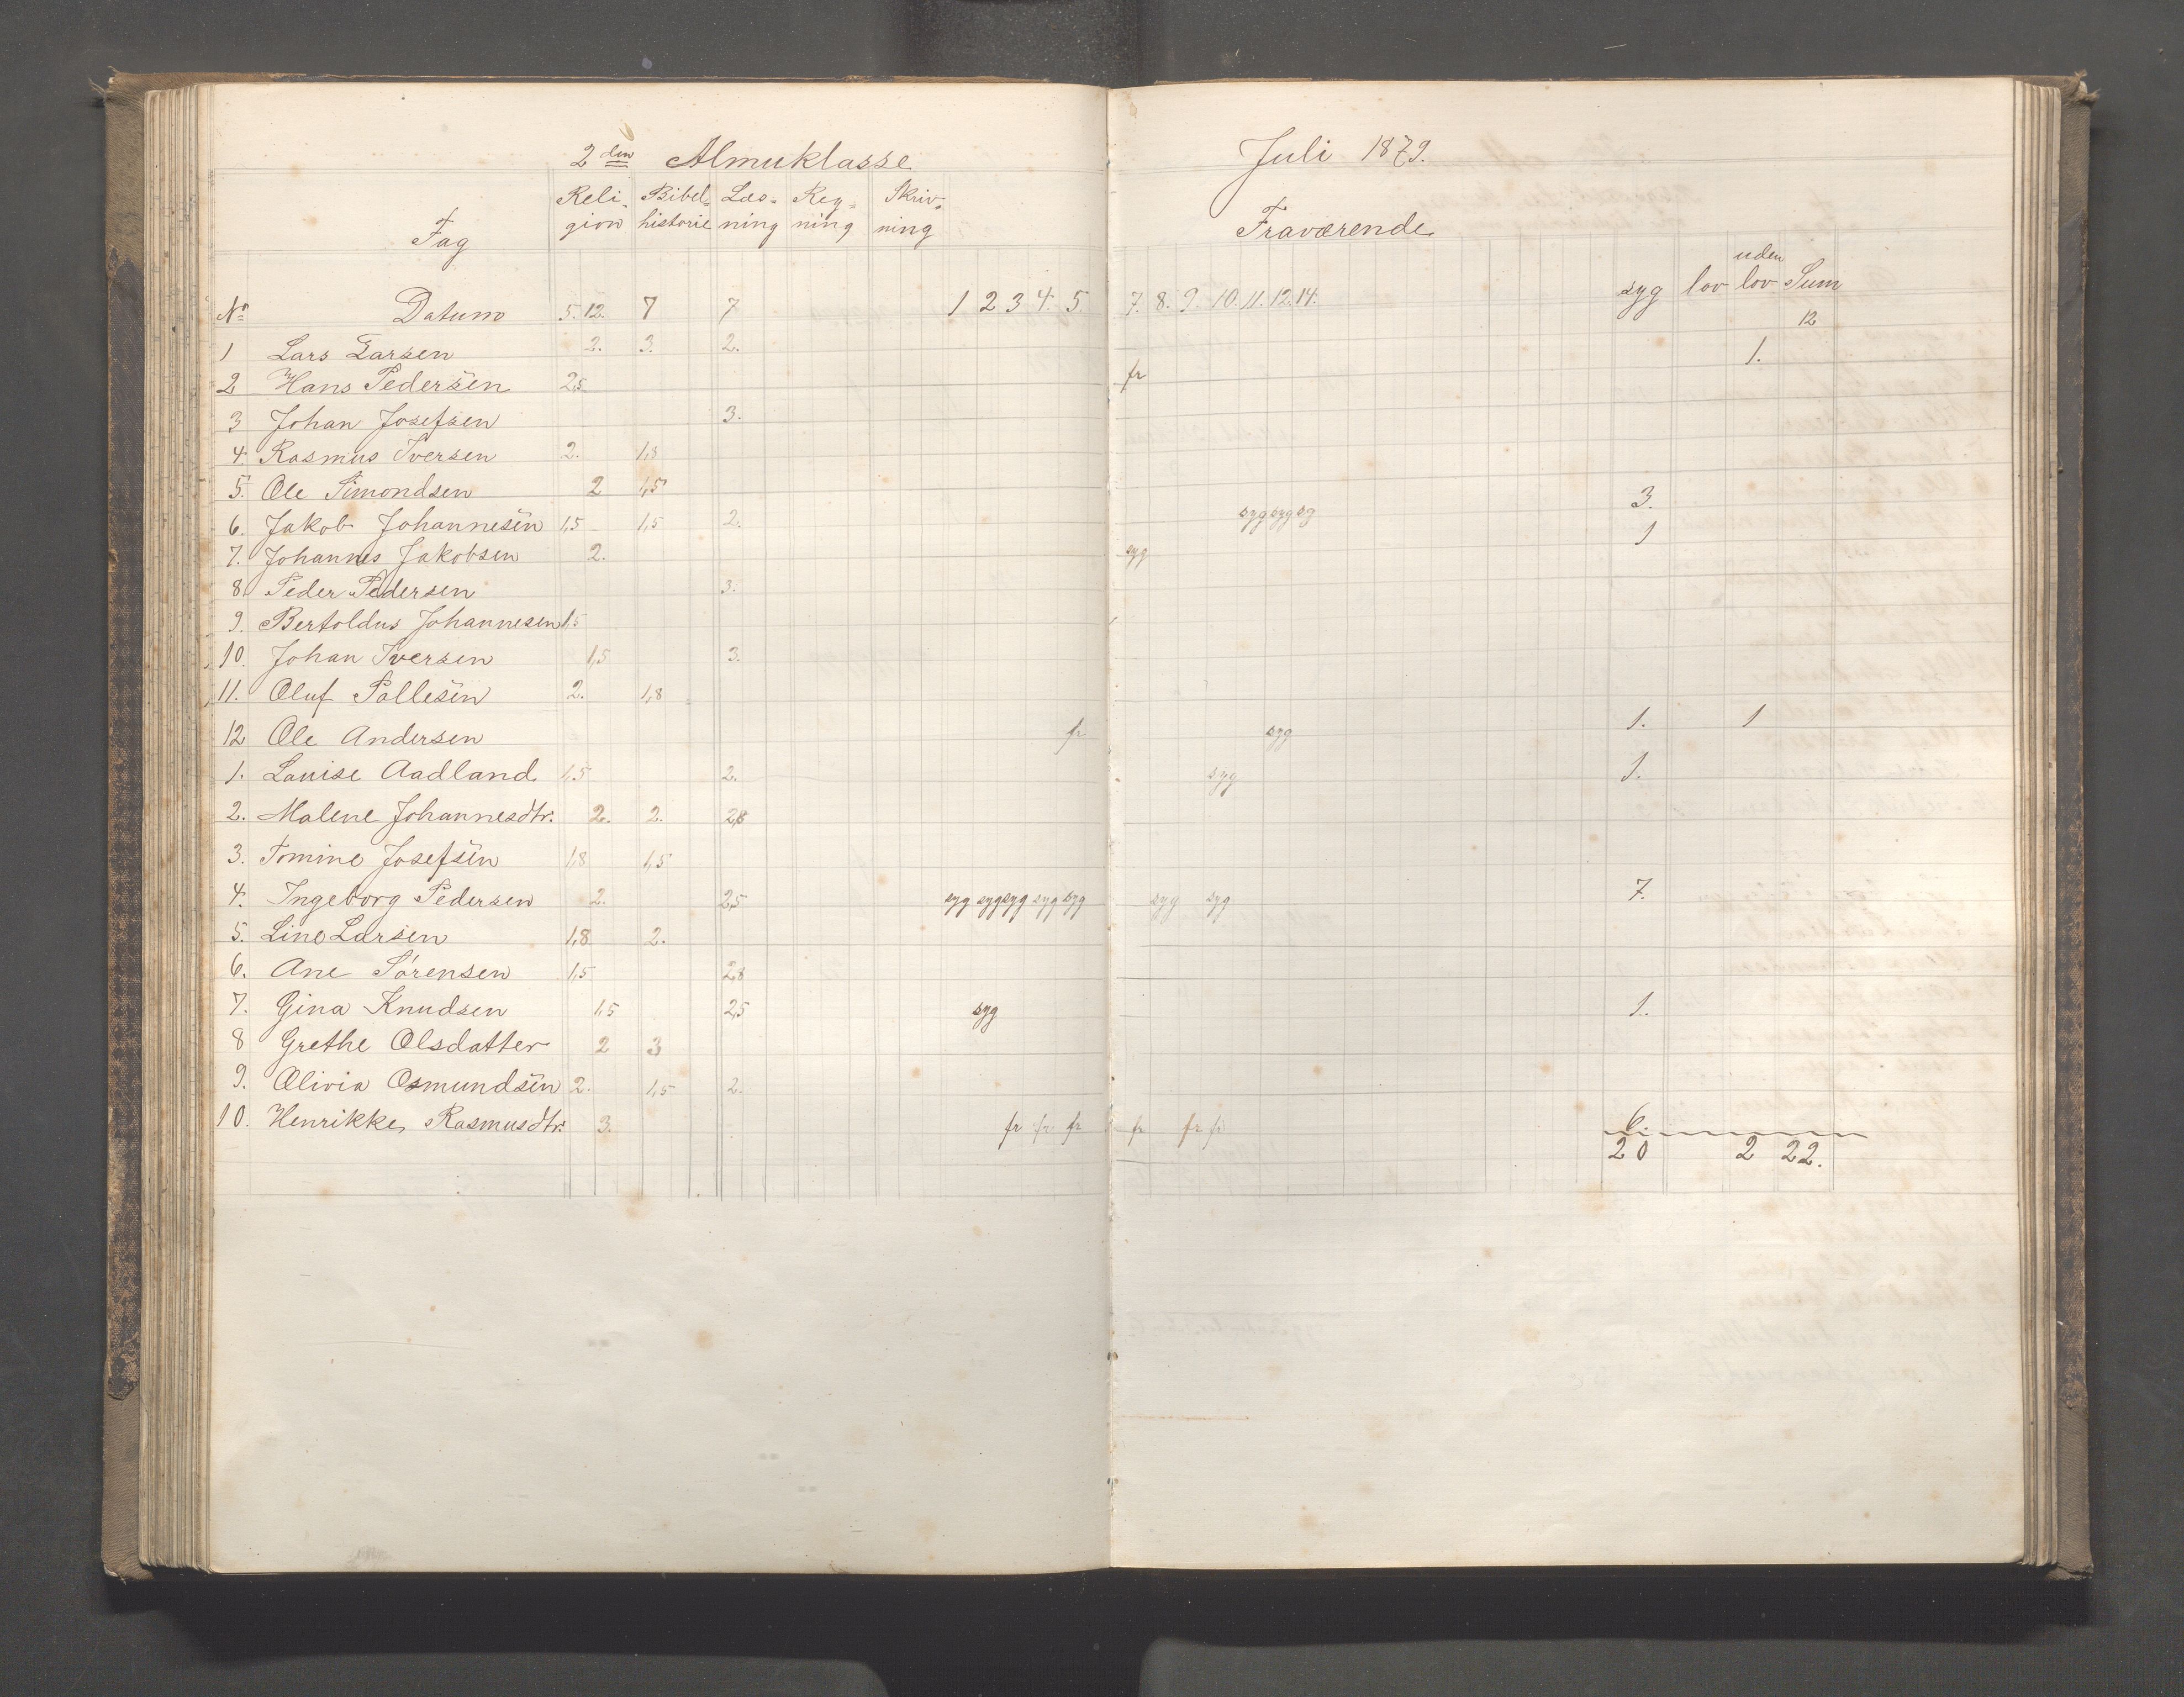 2den Almuklasse
Juli 1879.
Fag Reli- gion Bibel- historie Læs- ning Reg- ning Skriv- ning Fraværende
No Datum 5. 12. 7 7 1 2 3 4. 5. 7. 8. 9. 10. 11. 12. 14. syg lov uden lov Sum
12
1 Lars Larsen 2. 3. 2.
2 Hans Pedersen 2,5 fr 1.
3 Johan Josefsen 3.
4. Rasmus Iversen 2. 1,8
5. Ole Simondsen 2 1,5
6. Jakob Johannesen 1,5 1,5 2. syg syg sg 3.
7. Johannes Jakobsen 2. syg 1
8 Peder Pedersen 3.
9. Bertoldus Johannesen 1,5
10. Johan Iversen 1,5 3.
11. Oluf Pallesen 2. 1,8
12 Ole Andersen fr syg 1. 1
1. Louise Aadland 1,5 2. syg 1.
2. Malene Johannesdtr. 2. 2. 2,8
3. Tomine Josefsen 1,8 1,5
4. Ingeborg Pedersen 2. 2,5 syg syg syg syg syg syg syg 7.
5. Line Larsen 1,8 2.
6. Ane Sørensen 1,5 2,8
7. Gina Knudsen 1,5 2,5 syg 1.
8 Grethe Olsdatter 2 3
9. Olivia Osmundsen 2. 1,5 2.
10. Henrikke Rasmusdtr. 3. fr fr fr fr fr fr 6.
20 2 22.